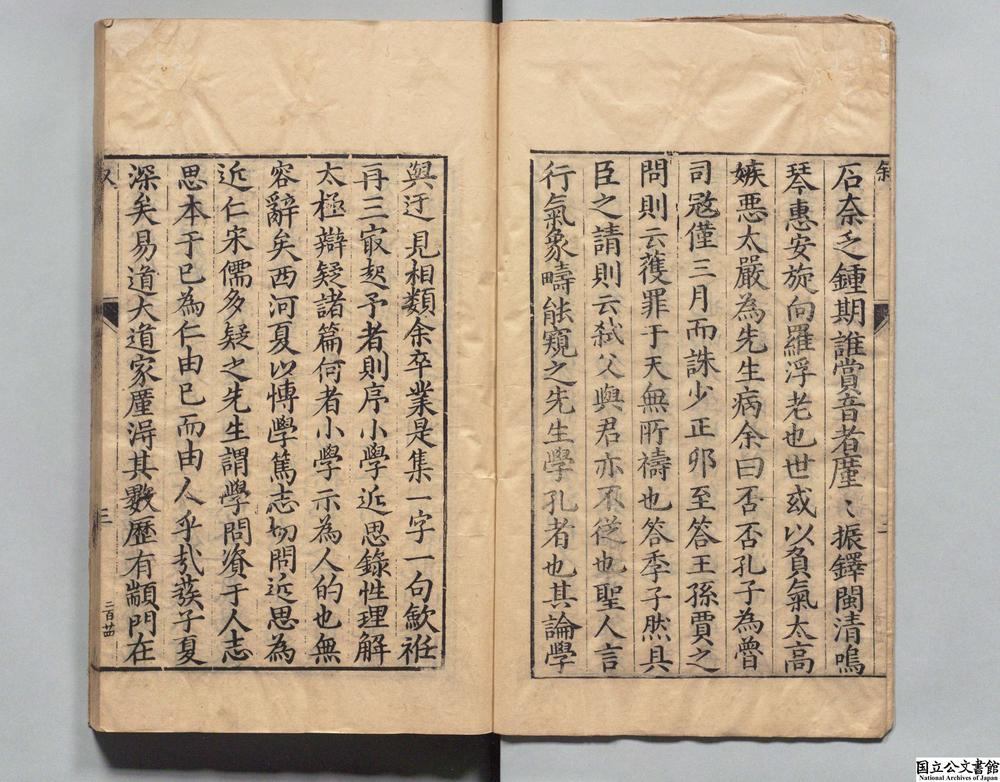 叙
石奈乏鍾期誰賞音者廑〻振鐸閩清鳴
琴惠安旋向羅浮老也世或以負氣太高
嫉悪太嚴為先生病余曰否否孔子為魯
司宼僅三月而誅少正卯至答王孫賈之
問則云𫉬罪于天無所禱也答季子然具
臣之請則云弑父與君亦不從也聖人言
行氣象疇能窺之先生學孔者也其論學
二
與迂見相類余卒業是集一字一句歛袵
再三㝡起予者則序小學近思錄性理解
太極辯疑諸篇何者小學示為人的也無
容辭矣西河夏以愽學篤志切問近思為
近仁宋儒多疑之先生謂學問資于人志
思本于已為仁由已而由人乎㢤㢤子夏
深矣易道大道家廑淂其數歷有顓門在
叙
三
二百四
国立公文書館
National Archives of Japan